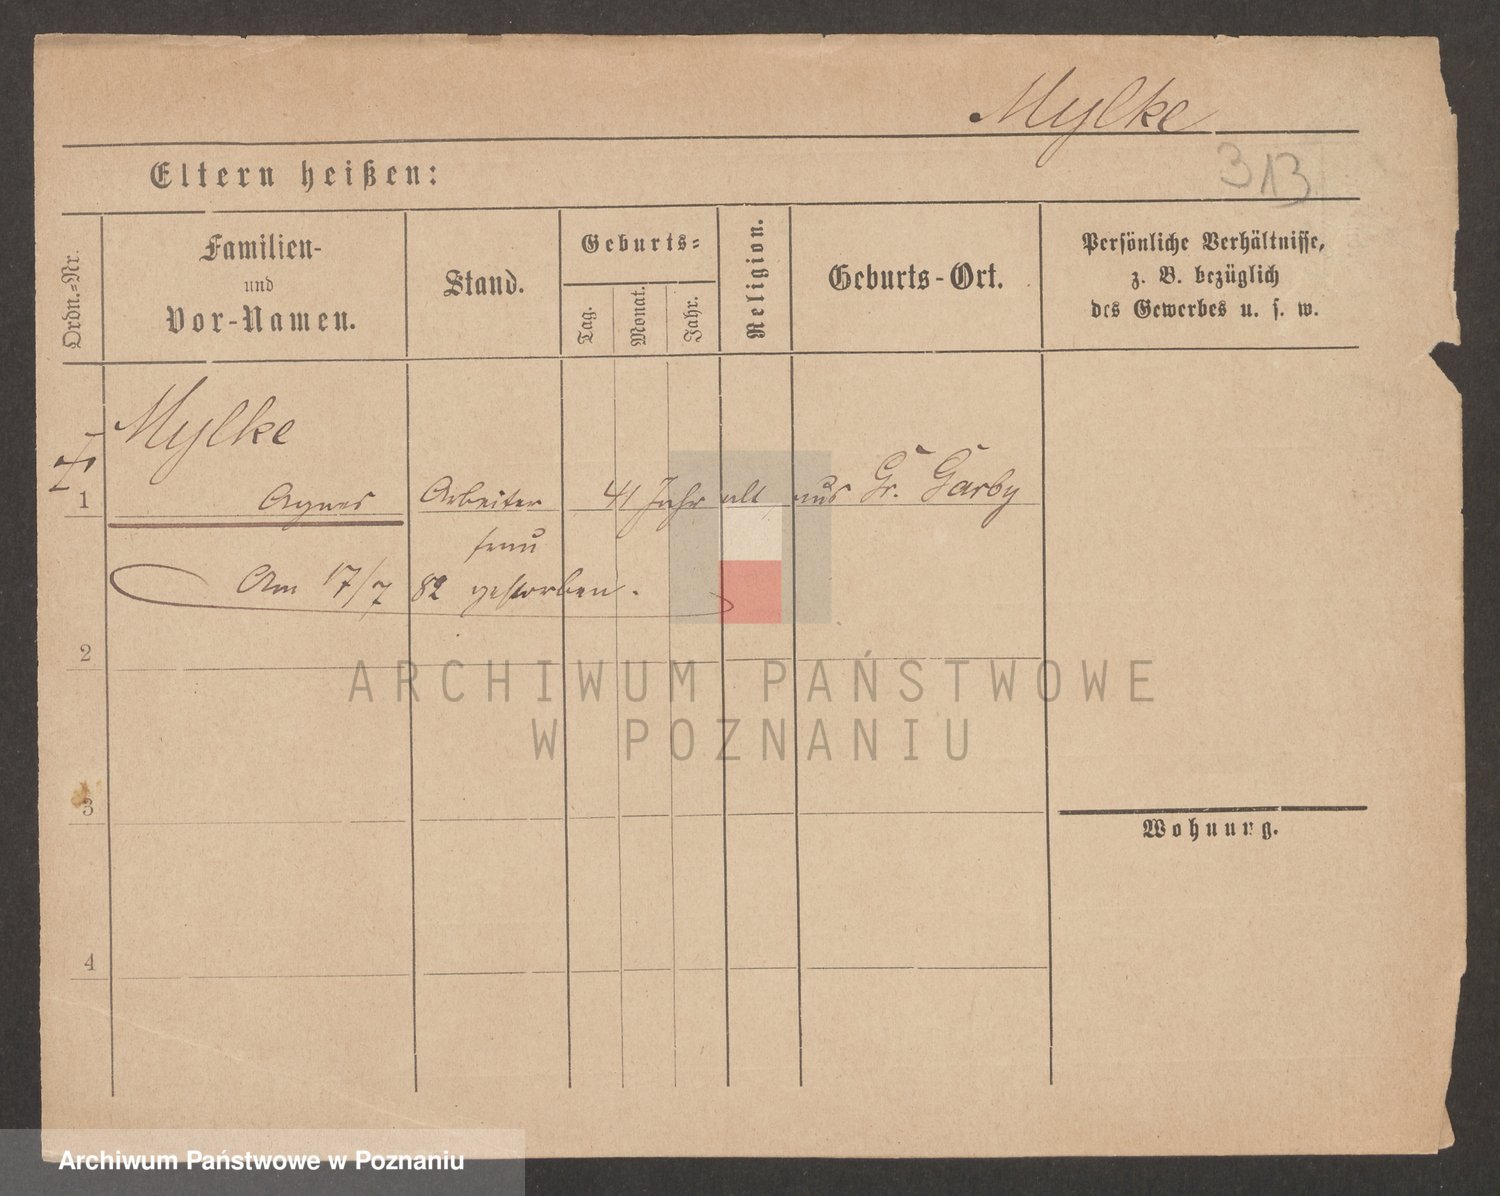 Mylke
313
Eltern heißen:
Ordn.-Nr.
Familien-
und
Vor-Namen.
Stand.
Geburts-
Tag.
Monat.
Jahr.
Religion.
Geburts-Ort.
Persönliche Verhältnisse,
z. B. bezüglich
des Gewerbes u. s. w.
Mylke
1 Agnes Arbeiter 41 Jahr alt aus Gr. Garby
frau
Am 17/7 82 gestorben.
2
ARCHIWUM PAŃSTWOWE
W POZNANIU
3
Wohnung.
4
Archiwum Państwowe w Poznaniu